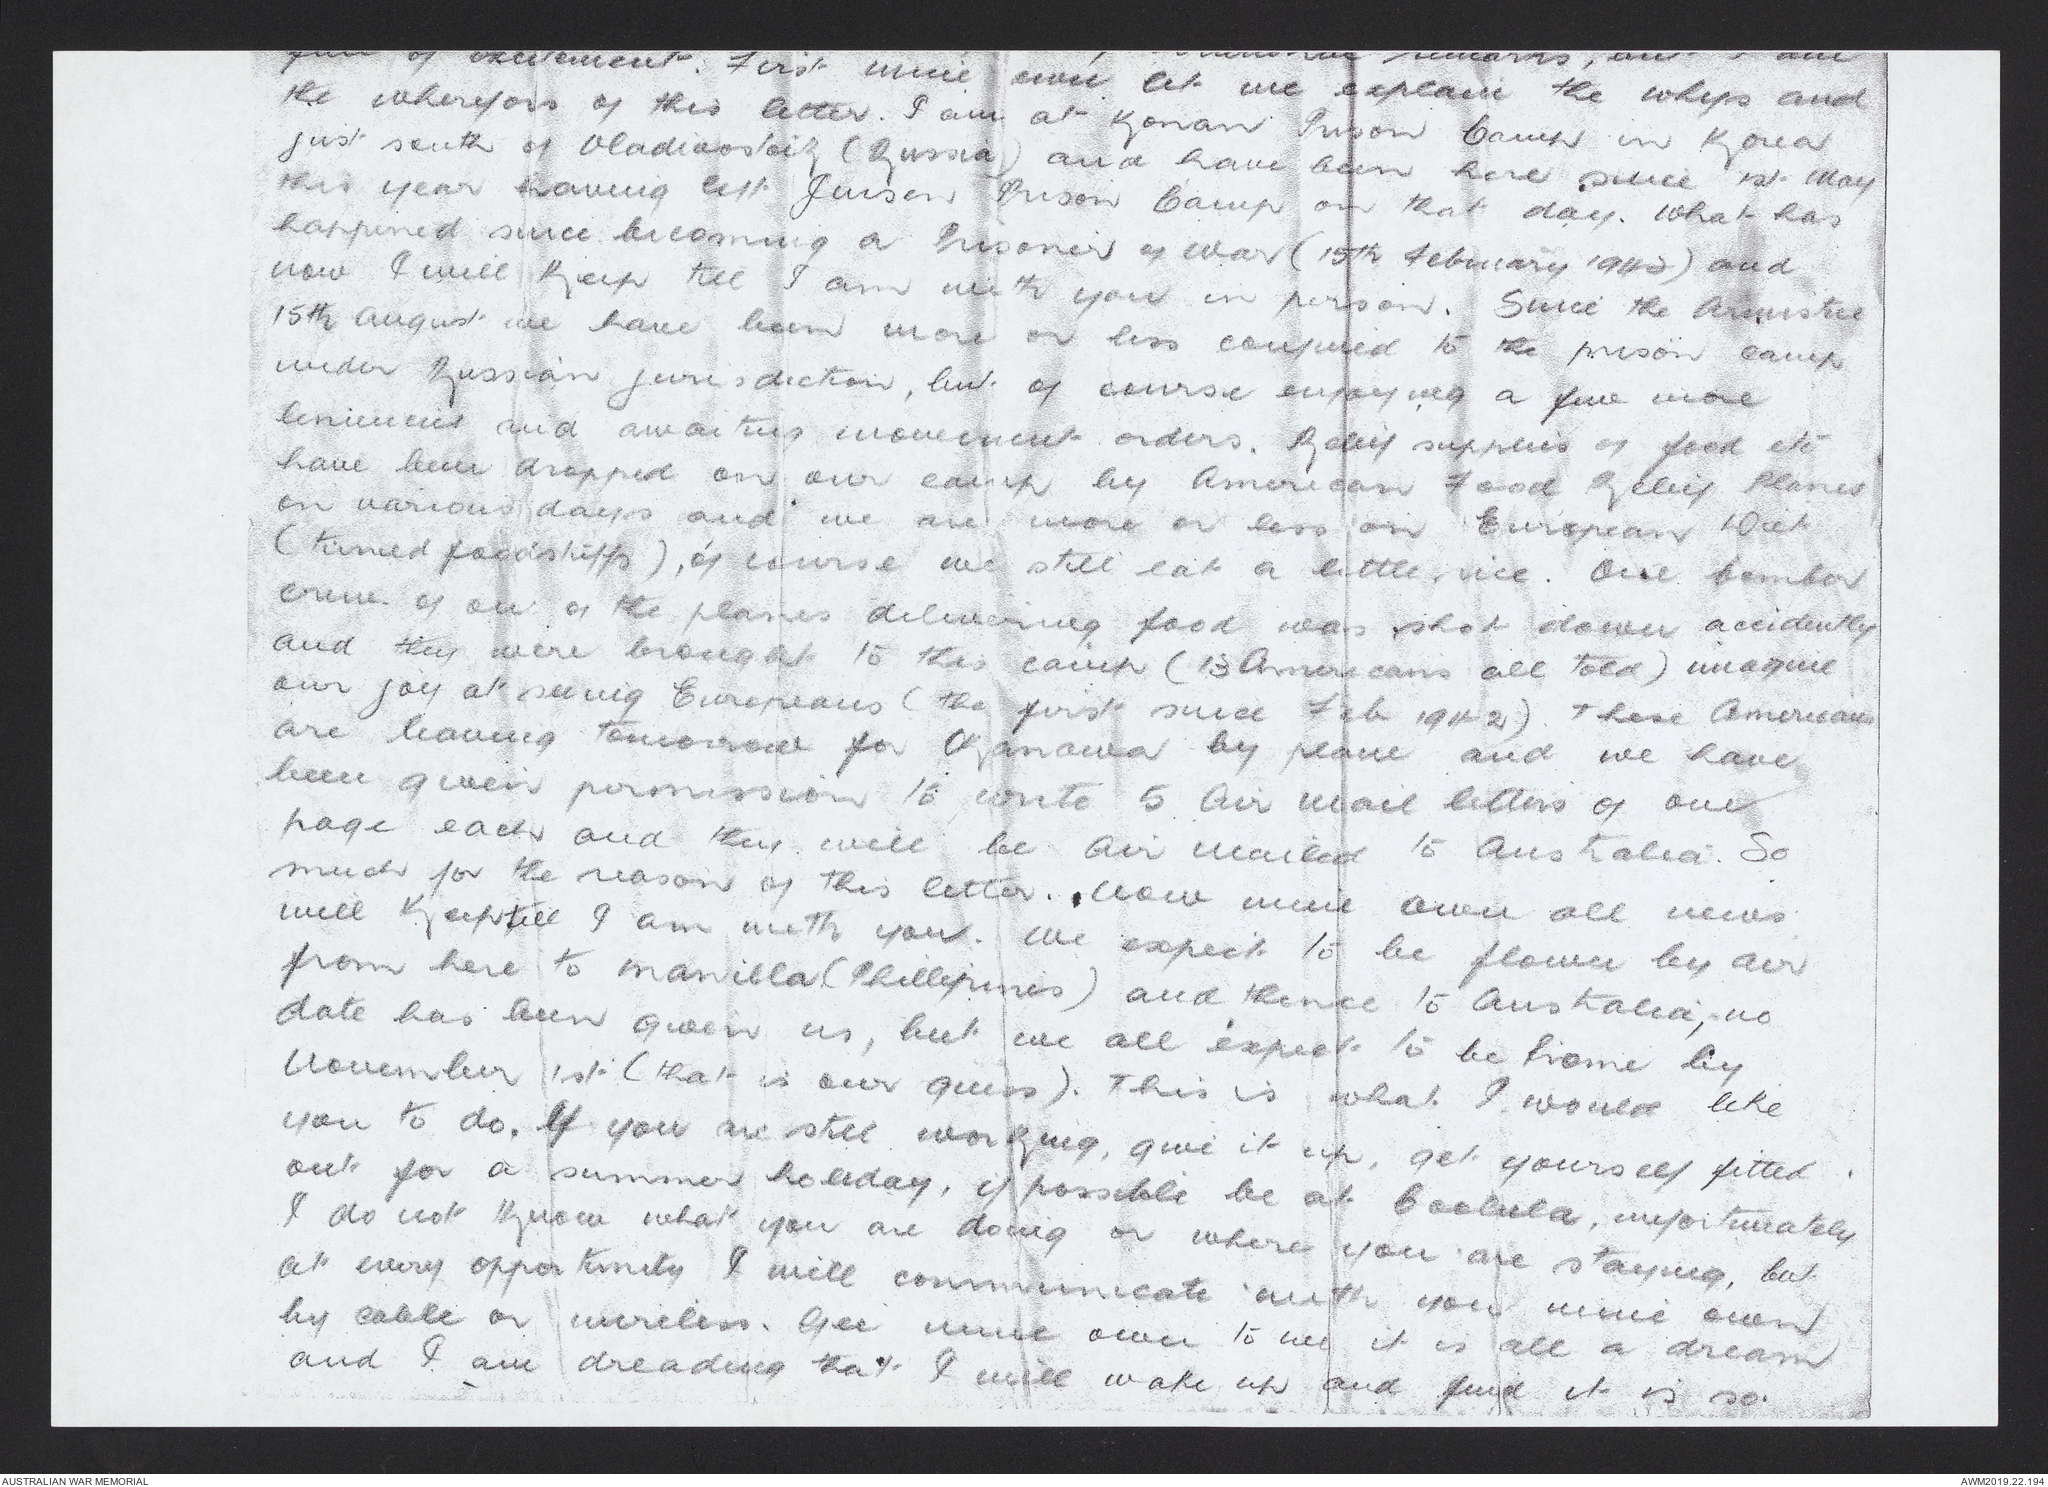 full of excitement. First mine own let me explain the whys and
the wherefors of this letter. I am at Konan Prison Camp in Korea
just south of Vladivostock (Russia) and have been here since 1st May
this year having left Jinsen Prison Camp on that day. What has
happened since becoming a Prisoner of War (15th February 1942) and
now I will keep till I am with you in person. Since the Armistice
15th August we have been more or less confined to the prison camp
under Russian jurisdiction, but of course enjoying a few more
leniencies and awaiting movement orders. Relief supplies of food etc
have been dropped on our camp by American Food Relief Planes
on various days and we are more or less on European Diet
(tinned foodstuffs), of course we still eat a little rice. One bomber
crew of one of the planes delivering food was shot down accidently
and they were brought to this camp (13 Americans all told) imagine
our joy at seeing Europeans (the first since Feb 1942). These Americans
are leaving tomorrow for Okanowa by plane and we have
been given permission to write 5 Air Mail letters of one
page each and they will be Air Mailed to Australia. So
much for the reason of this letter. Now mine own all news
will keep till I am with you. We expect to be flown by air
from here to Manilla (Phillipines) and thence to Australia, no
date has been given us, but we all expect to be home by
November 1st (that is our guess). This is what I would like
you to do. If you are still working, give it up, get yourself fitted
out for a summer holiday, if possible be at Coolula, unfortunately
I do not know what you are doing or where you are staying, but
at every opportunity I will communicate with you mine own
by cable or wireless. Gee mine own to me it is all a dream
and I am dreading that I will wake up and find it is so.
AUSTRALIAN WAR MEMORIAL
AWM2019.22.194